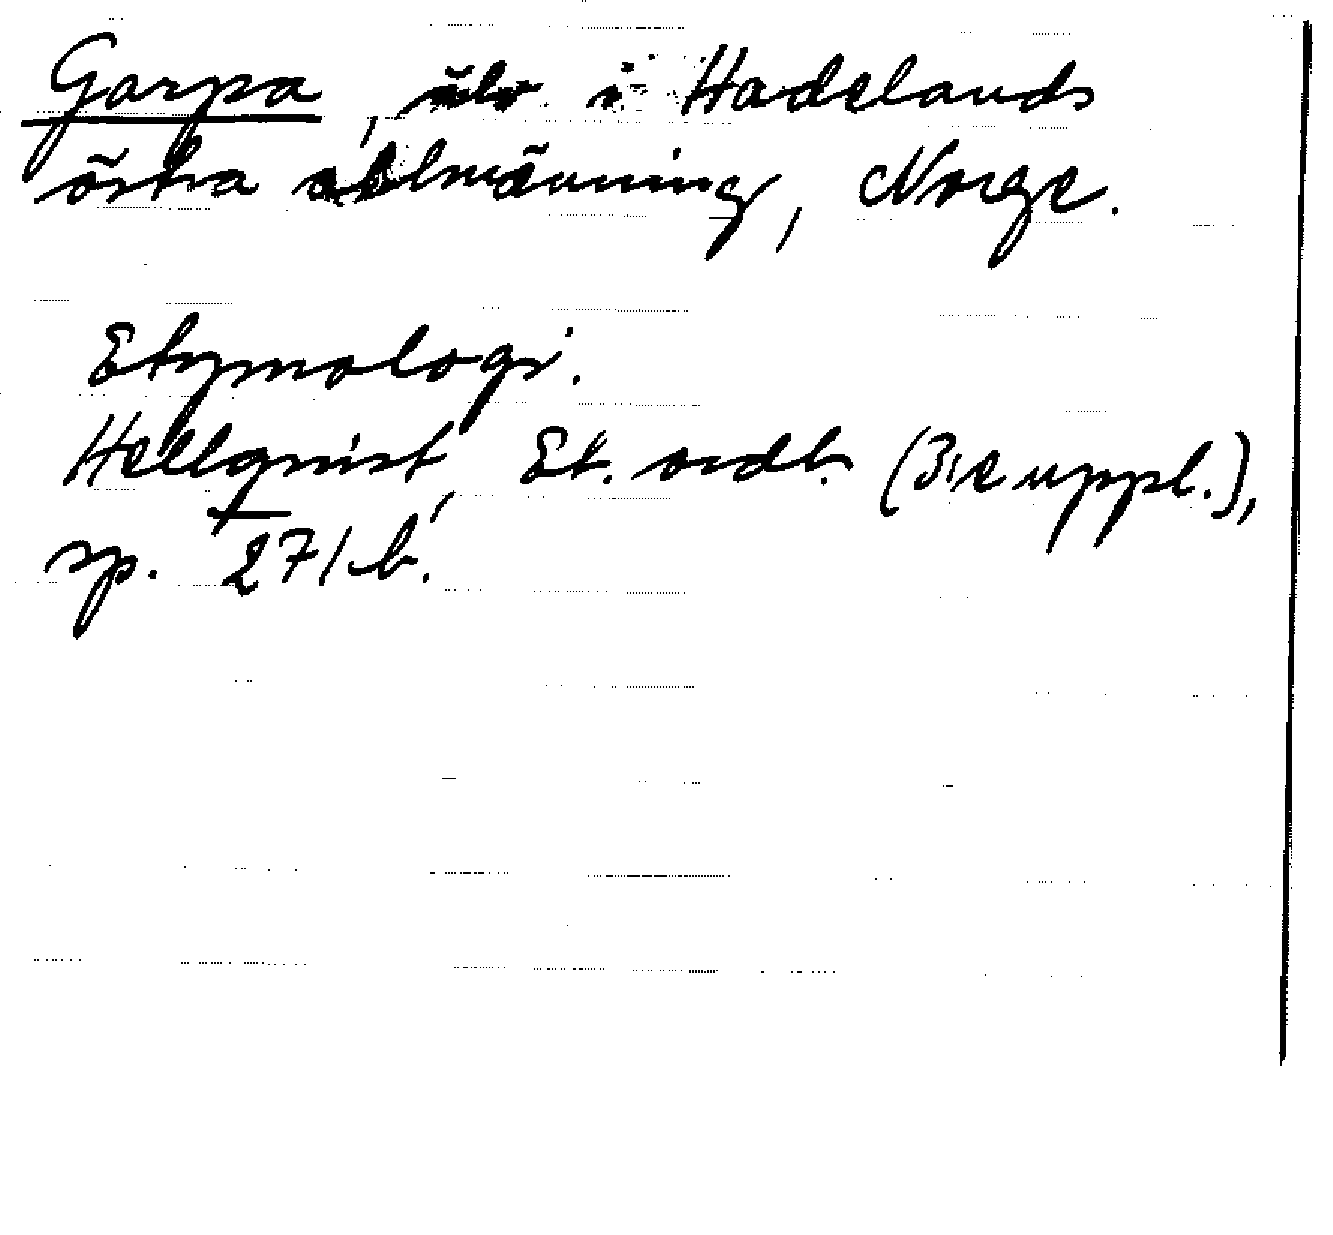 Garpa, älv i Hadelands
östra allmänning, Norge.
Etymologi.
Hellquist, Et. ordb. (3:e uppl.),
sp. 271 b.